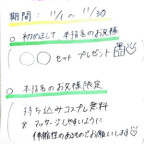 期間: 11/1 〜 11/30
○ 初めまして 本指名のお客様
○○セットプレゼント
○ 本指名のお客様限定
持ち込みコスプレ無料
※マッサージしやすいように
伸縮性のあるものでお願いします